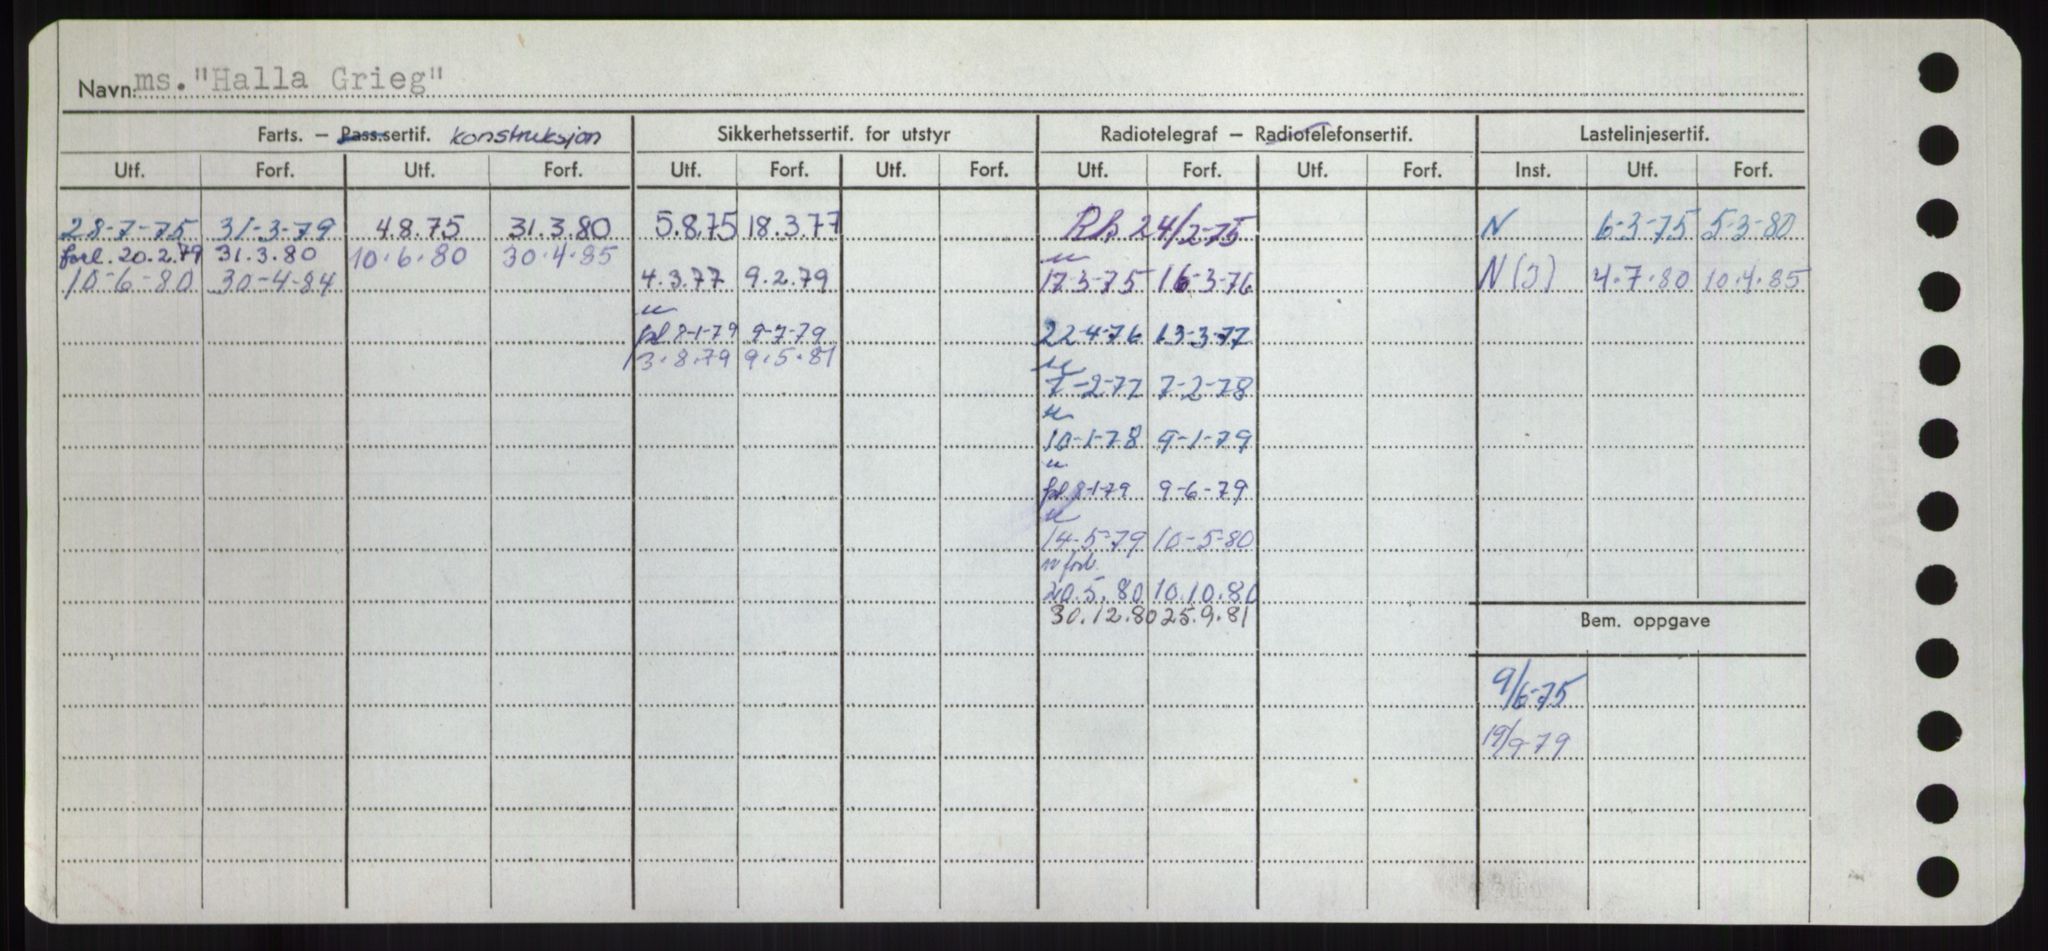 Navn: ms."Halla Grieg"
Farts. – Pass.sertif. konstruksjon Sikkerhetssertif. for utstyr Radiotelegraf – Radiotelefonsertif. Lastelinjesertif.
Utf. Forf. Utf. Forf. Utf. Forf. Utf. Forf. Utf. Forf. Utf. Forf. Inst. Utf. Forf.
28-7-75 31-3-79 4.8.75 31.3.80 5.8.75 18.3.77 24/2-75 N 6-3-75 5-3-80
forl. 20.2.79 31.3.80 10.6.80 30.4.85
10-6-80 30-4-84 4.3.77 9.2.79 17-3-75 16-3-76 N(3) 4.7.80 10.4.85
8-1-79 9-7-79 22-4-76 13-3-77
3.8.79 9.5.81
7-2-77 7-2-78
10-1-78 9-1-79
8-1-79 9-6-79
14-5-79 10-5-80
20.5.80 10.10.80
30.12.80 25.9.81
Bem. oppgave
9/6-75
19/9-79